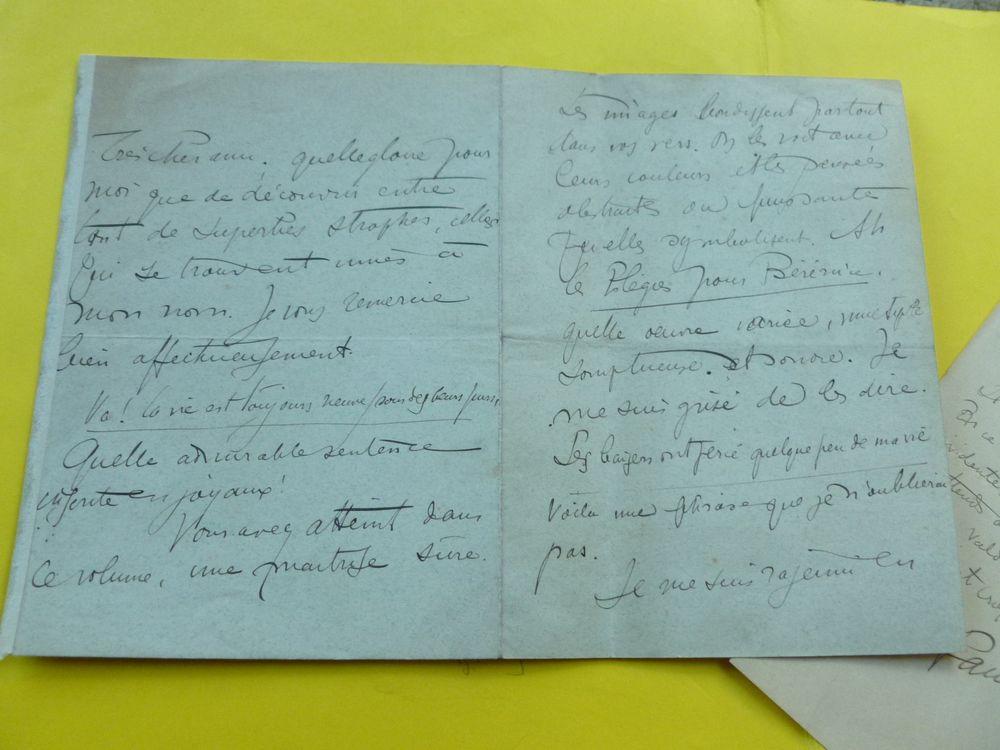 Très cher ami. quelle gloire pour
moi que de découvrir entre
tant de superbes strophes, celles
qui se trouvent unies à
mon nom. Je vous remercie
bien affectueusement.
Va! la vie est toujours neuve pour des
Quelle admirable sentence
en joyaux!
Vous avez atteint dans
ce volume, une maitrise sûre.
Les images bondissent partout
dans vos vers. On les voit avec
leurs couleurs et les pensées
abstraites ou
qu'elles symbolisent. Ah
les Elégies pour Bérénice.
quelle oeuvre variée,
somptueuse et sonore. Je
me suis grisé de les dire.
Les baisers ont quelque peu de ma vie
Voilà une phrase que je n'oublierai
pas.
Je me suis rajeuni en
Pau